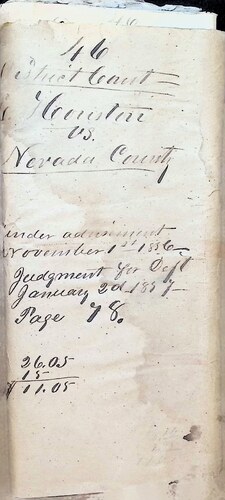 46
District Court
Houston
vs.
Nevada County
under advisement
November 1st 1856
Judgment for Deft
January 2d 1857
Page 78.
26.05
15
$11.05